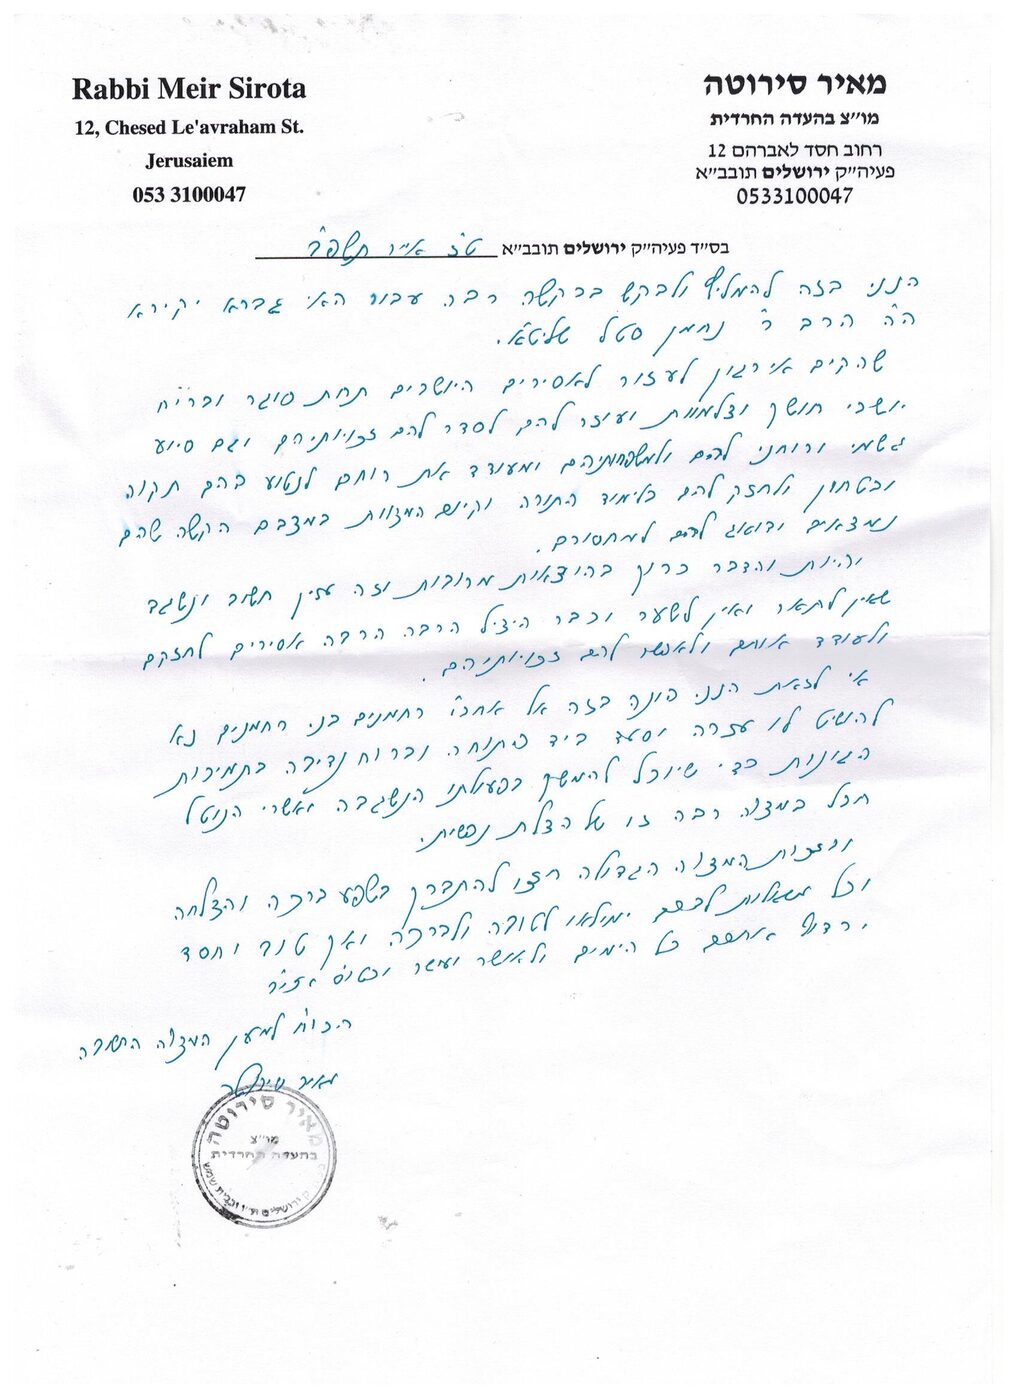 Rabbi Meir Sirota
12, Chesed Le'avraham St.
Jerusaiem
053 3100047
מאיר סירוטה
מו״צ בהעדה החרדית
רחוב חסד לאברהם 12
פעיה״ק ירושלים תובב״א
0533100047
בס״ד פעיה״ק ירושלים תובב״א ט"ז אייר תשפ"ב
הנני בזה להמליץ ולבקש בבקשה רבה עבור האי גברא יקירא
ה"ה הרב ר' נחמן סטל שליט"א.
שהקים אירגון לעזור לאסירים היושבים תחת סוגר ובריח
יושבי חושך וצלמוות ועוזר להם לסדר להם זכויותיהם וגם סיוע
גשמי ורוחני להם ולמשפחותיהם ומעודד את רוחם לנטוע בהם תקוה
ובטחון ולחזק להם בלימוד התורה וקיום המצוות במצבם הקשה שהם
נמצאים ודואג להם למחסורם.
והיות והדבר כרוך בהוצאות מרובות וזה ענין חשוב ונשגב
שאין לתאר ואין לשער וכבר הציל הרבה הרבה אסירים לחזקם
ולעודד אותם ולאפשר להם זכויותיהם.
אי לזאת הנני פונה בזה אל אחב"י רחמנים בני רחמנים נא
להושיט לו עזרה וסעד ביד פתוחה וברוח נדיבה בתמיכות
הגונות כדי שיוכל להמשיך בפעולתו הנשגבה ואשרי הנוטל
חבל במצוה רבה זו של הצלת נפשות.
ובזכות המצוה הגדולה תזכו להתברך בשפע ברכה והצלחה
וכל משאלות לבכם ימולאו לטובה ולברכה ואך טוב וחסד
ירדוף אתכם כל הימים ולאושר ועושר וכטו"ס אכי"ר
הכו"ח למען המצוה החשובה
מאיר סירוטה
מאיר סירוטה
מו״צ
בהעדה החרדית
ירושלים ת״ו ובבית שמש